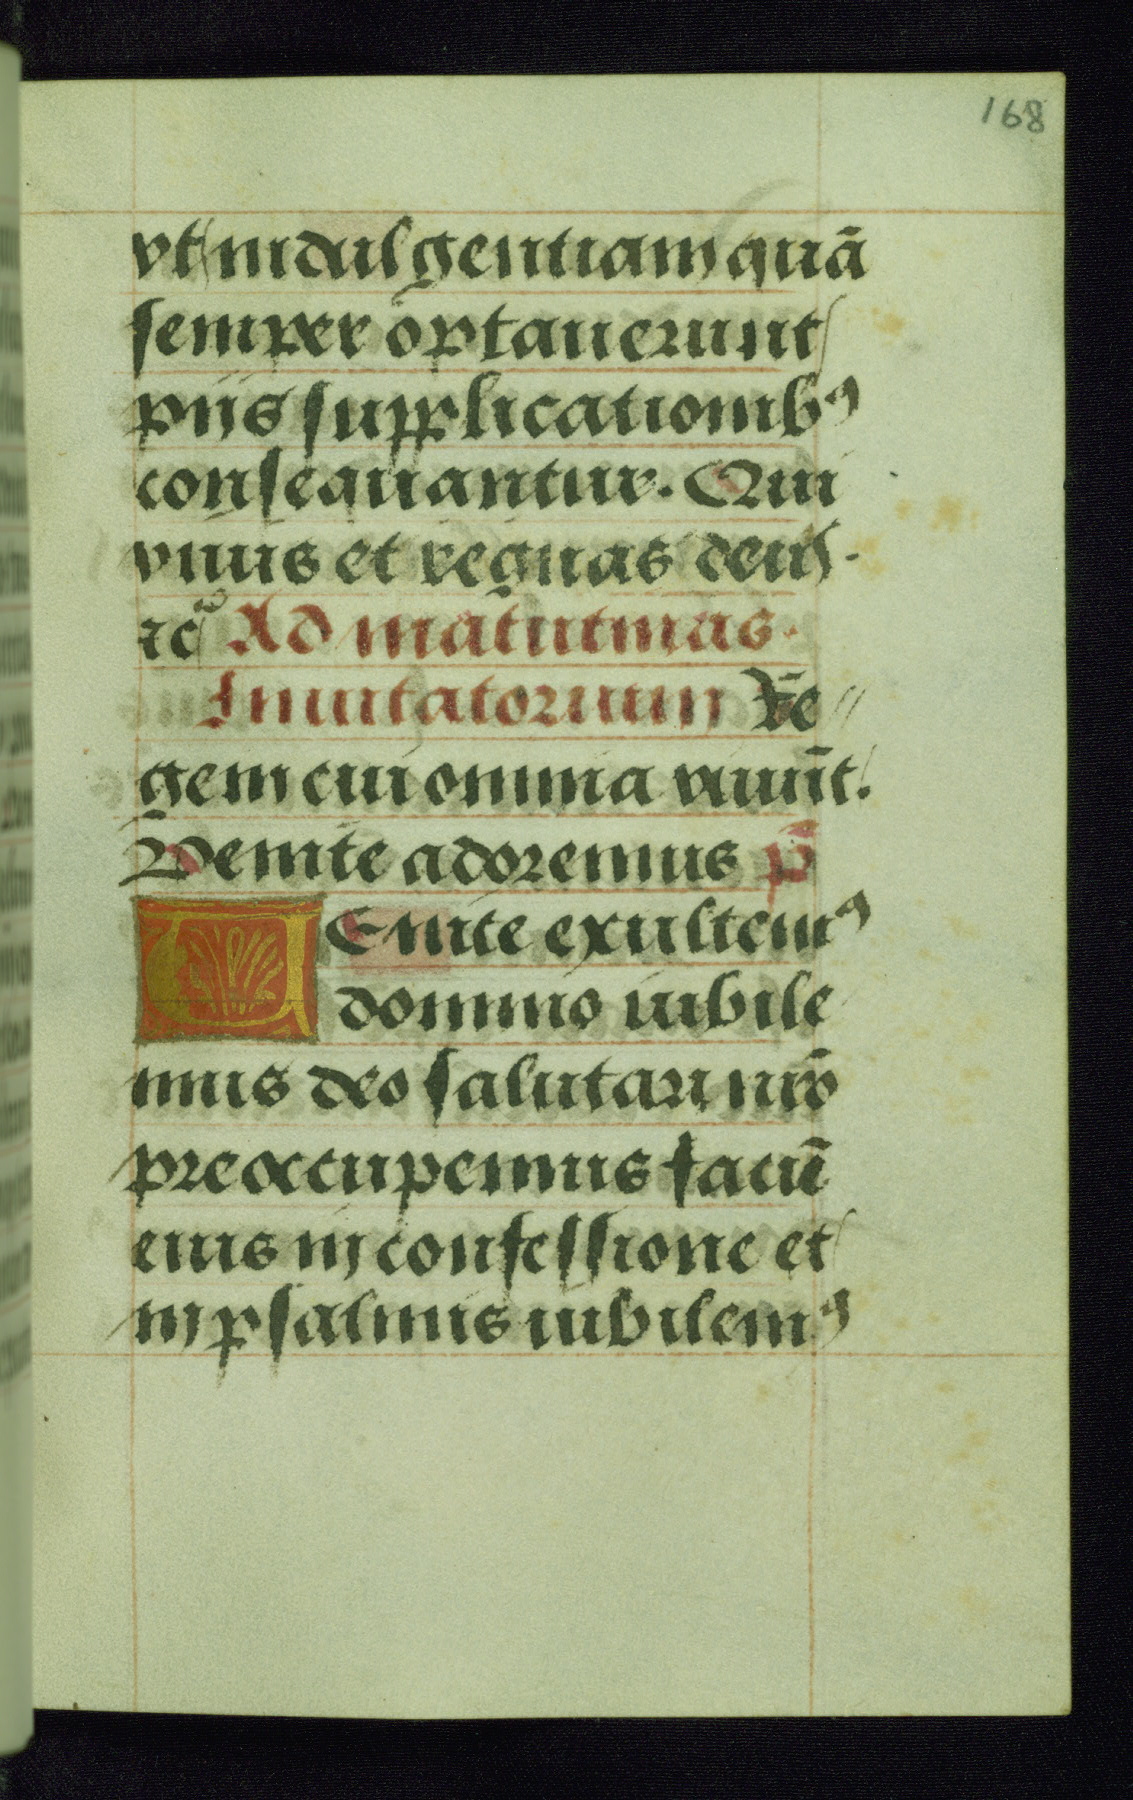 168
vt indulgentiam quā
semper optauerunt
piis supplicationibꝰ
consequantur. Qui
viuis et regnas deus.
⁊c̃ Ad matutinas.
Inuitatorium Re//
gem cui omnia viuūt.
Venite adoremus p̄s̄
VEnite exultemꝰ
domino iubile
mus deo salutari nr̄o
preoccupemus faciē
eius in confessione et
in psalmis iubilemꝰ